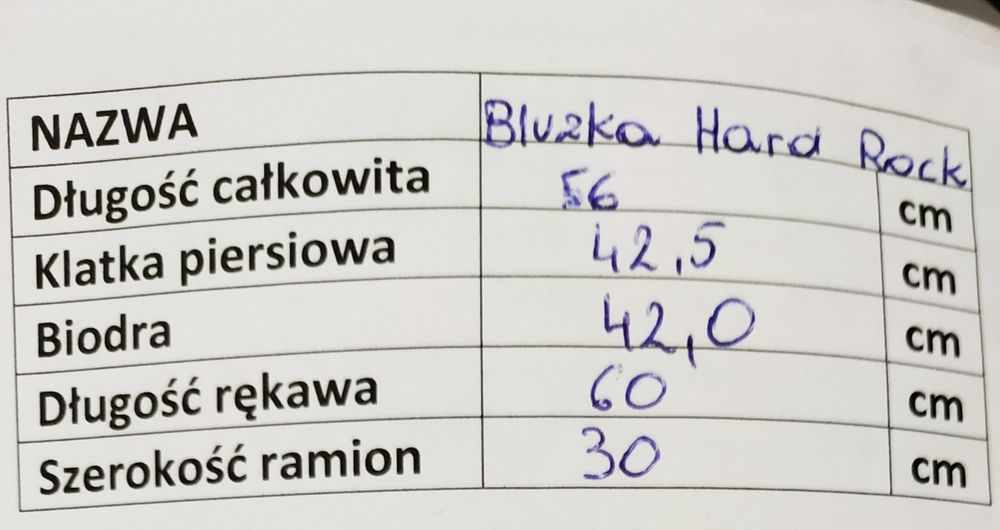 NAZWA Bluzka Hard Rock
Długość całkowita 56 cm
Klatka piersiowa 42,5 cm
Biodra 42,0 cm
Długość rękawa 60 cm
Szerokość ramion 30 cm